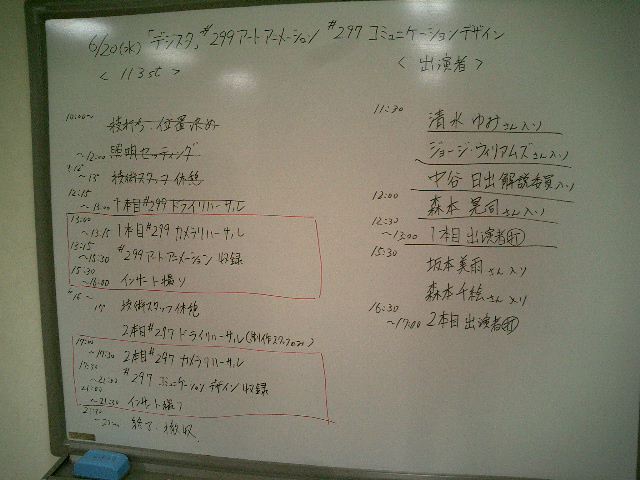 6/20(水)「デジスタ」#299アートアニメーション #297コミュニケーションデザイン
<113st>
<出演者>
10:00~ 技打ち・位置決め
~12:00 照明セッティング
技術スタッフ休憩
12:15
~13:00 1本目#299ドライリハーサル
13:00
~13:15 1本目#299 カメラリハーサル
13:15
~15:30 #299アートアニメーション 収録
15:30
~16:00 インサート撮り
技術スタッフ休憩
2本目#297ドライリハーサル(制作スタッフのみ)
17:00
~17:30 2本目#297 カメラリハーサル
17:30
~21:00 #297 コミュニケーションデザイン収録
21:00
~21:30 インサート撮り
21:30
終了・撤収
11:30 清水ゆみさん入り
ジョージ・ウィリアムズさん入り
中谷日出解説委員入り
12:00 森本晃司さん入り
12:30
~13:00 1本目出演者打
15:30 坂本美雨さん入り
森本千絵さん入り
16:30
~17:00 2本目出演者打